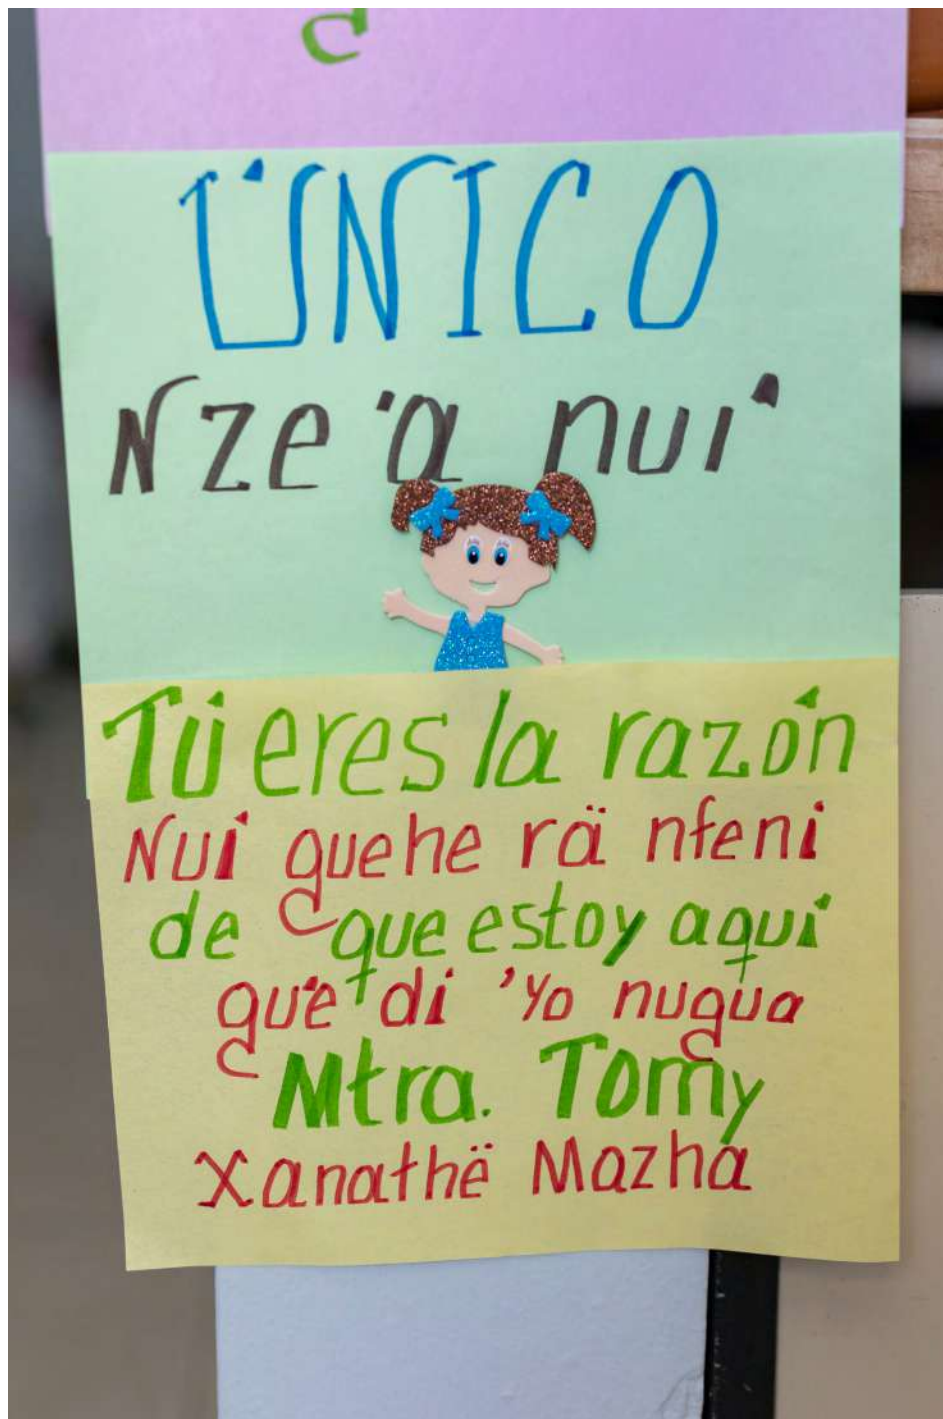 ÚNICO
Nze'a nui'
Tú eres la razón
Nui guehe rä nfeni
de que estoy aquí
gue di 'yo nugua
Mtra. Tomy
Xanathë Mazha